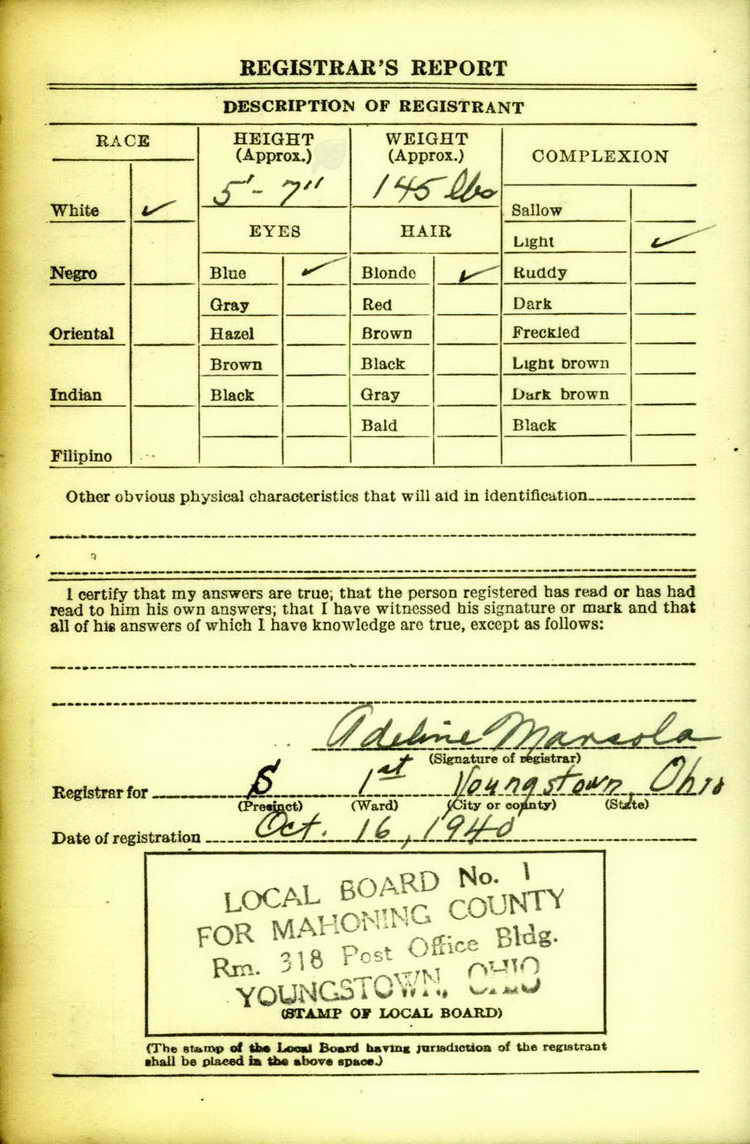 REGISTRAR'S REPORT
DESCRIPTION OF REGISTRANT
RACE
HEIGHT
(Approx.)
WEIGHT
(Approx.)
COMPLEXION
5'-7"
145 lbs
White ✓
Sallow
EYES
HAIR
Light ✓
Negro
Blue ✓
Blonde ✓
Ruddy
Gray
Red
Dark
Oriental
Hazel
Brown
Freckled
Brown
Black
Light brown
Indian
Black
Gray
Dark brown
Bald
Black
Filipino
Other obvious physical characteristics that will aid in identification
I certify that my answers are true; that the person registered has read or has had
read to him his own answers; that I have witnessed his signature or mark and that
all of his answers of which I have knowledge are true, except as follows:
Adeline Marsola
(Signature of registrar)
Registrar for S 1st Youngstown, Ohio
(Precinct) (Ward) (City or county) (State)
Date of registration Oct. 16, 1940
LOCAL BOARD No. 1
FOR MAHONING COUNTY
Rm. 318 Post Office Bldg.
YOUNGSTOWN, OHIO
(STAMP OF LOCAL BOARD)
(The stamp of the Local Board having jurisdiction of the registrant
shall be placed in the above space.)